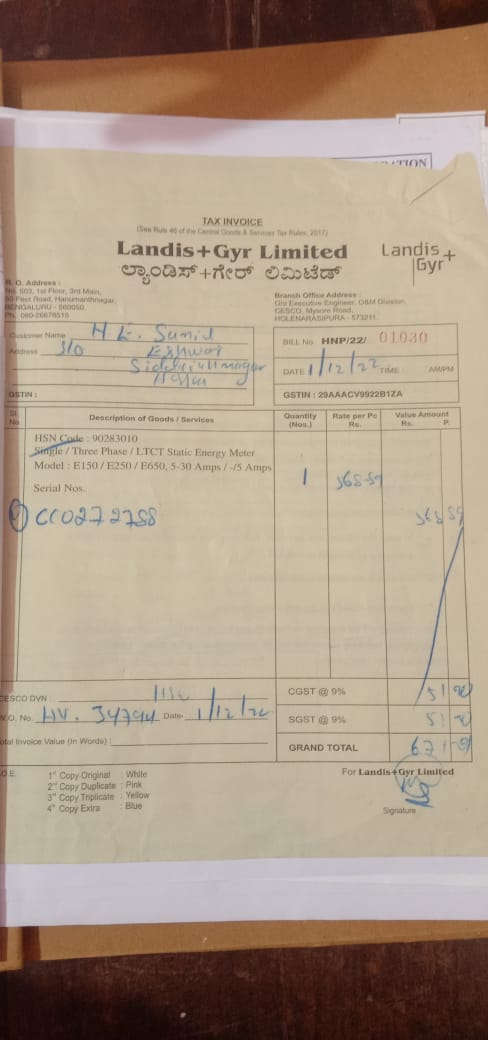 TION
TAX INVOICE
(See Rule 46 of the Central Goods & Services Tax Rules, 2017)
Landis+Gyr Limited
ಲ್ಯಾಂಡಿಸ್+ಗೇರ್ ಲಿಮಿಟೆಡ್
Landis+
Gyr
R. O. Address :
No. 503, 1st Floor, 3rd Main,
50 Feet Road, Hanumanthnagar,
BENGALURU - 560050
Ph. 080-26676515
Branch Office Address :
O/o Executive Engineer, O&M Division,
CESCO, Mysore Road,
HOLENARASIPURA - 573211.
Customer Name H E. Sunil
Address S/o Eshwar
Hassan
GSTIN :
BILL No. HNP/22/ 01030
DATE 1/12/22 TIME : AM/PM
GSTIN : 29AAACV9922B1ZA
Sl. No. Description of Goods / Services Quantity (Nos.) Rate per Pc Rs. Value Amount Rs. P.
HSN Code : 90283010
Single / Three Phase / LTCT Static Energy Meter
Model : E150 / E250 / E650, 5-30 Amps / -/5 Amps
Serial Nos. 1 568-59
CC0272758 568 59
CESCO DVN : CGST @ 9% 51
W.O. No. HV. 34794 Date 1/12/22 SGST @ 9% 51
Total Invoice Value (In Words) : GRAND TOTAL 671
O.E.
1st Copy Original : White
2nd Copy Duplicate : Pink
3rd Copy Triplicate : Yellow
4th Copy Extra : Blue
For Landis+Gyr Limited
Signature